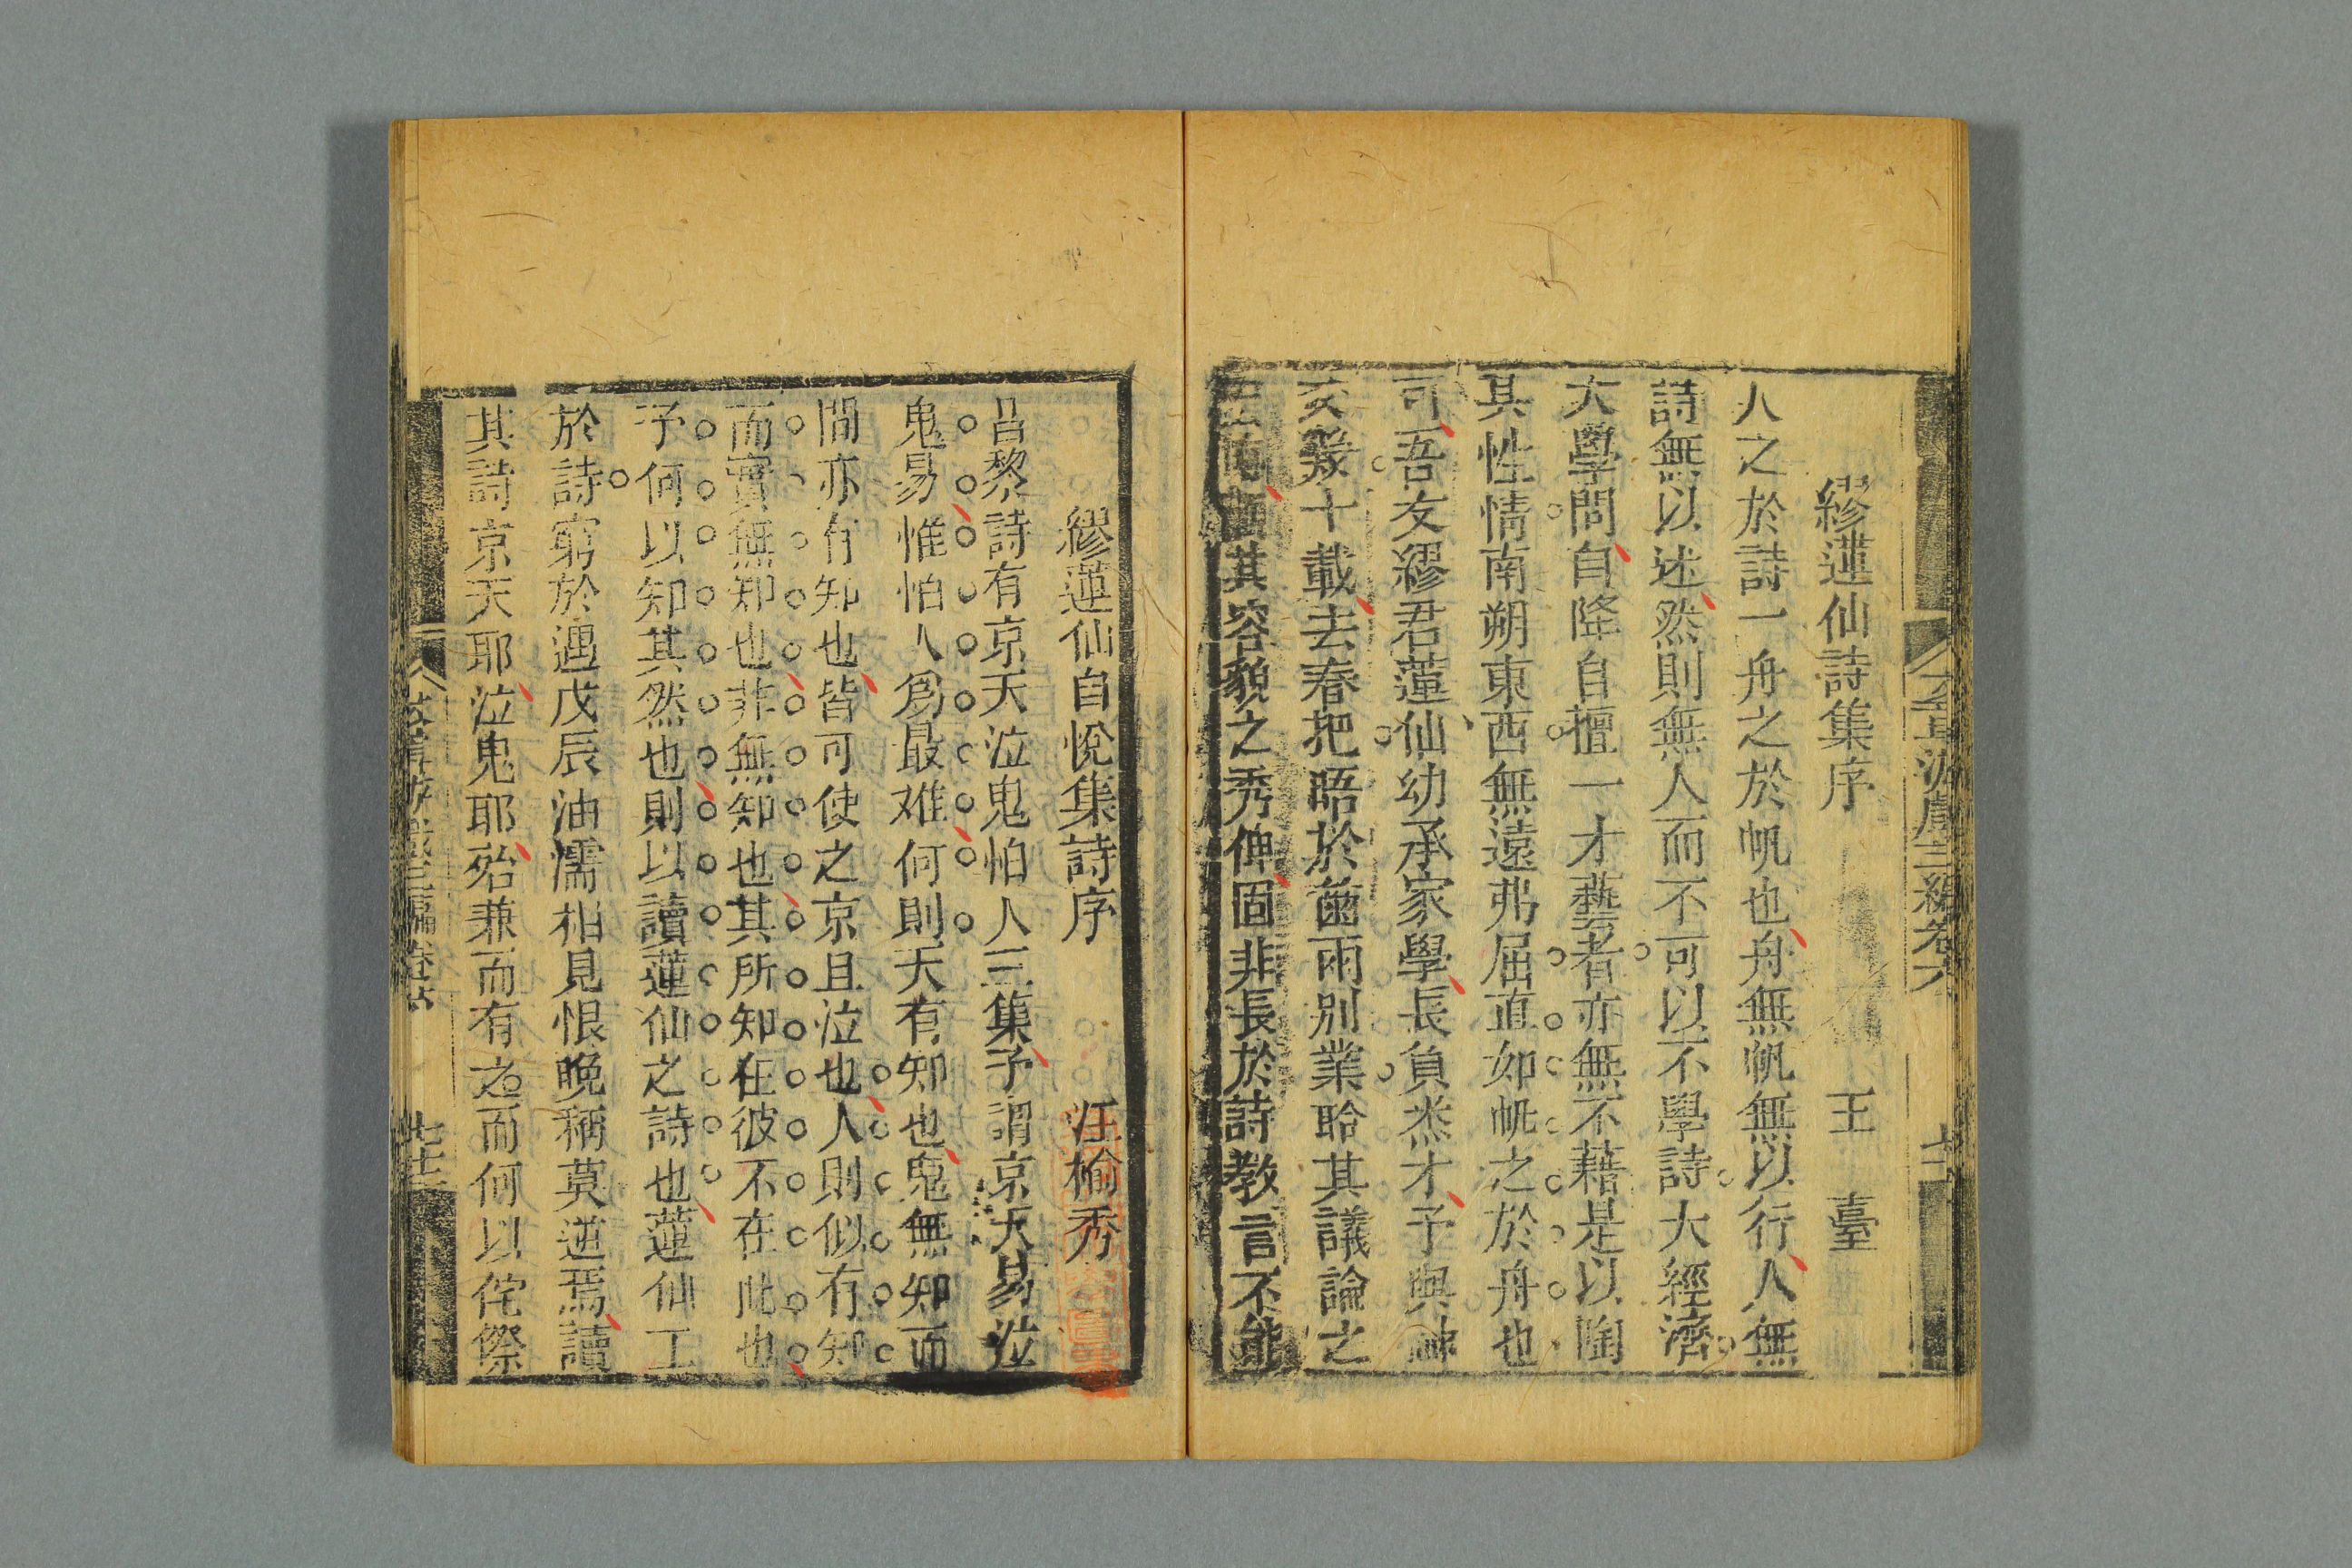 繆蓮仙詩集序 王臺
人之於詩一舟之於帆也舟無帆無以行人無
詩無以述然則無人而不可以不學詩大經濟
大學問自降自擅一才藝者亦無不藉是以陶
其性情南朔東西無遠弗屆直如帆之於舟也
可吾友繆君蓮仙幼承家學長負杰才予與神
交幾十載去春把晤於菌雨別業聆其議論之
其容貌之秀俾固非長於詩教言不能
繆蓮仙自悅集詩序 汪榆秀
昌黎詩有京天泣鬼怕人三集予謂京天易泣
鬼易惟怕人為最难何則天有知也鬼無知而
間亦有知也皆可使之京且泣也人則似有知
而實無知也非無知也其所知在彼不在此也
予何以知其然也則以讀蓮仙之詩也蓮仙工
於詩窮於遇戊辰油濡相見恨晚稱莫逆焉讀
其詩京天耶泣鬼耶殆兼而有之而何以侘傺